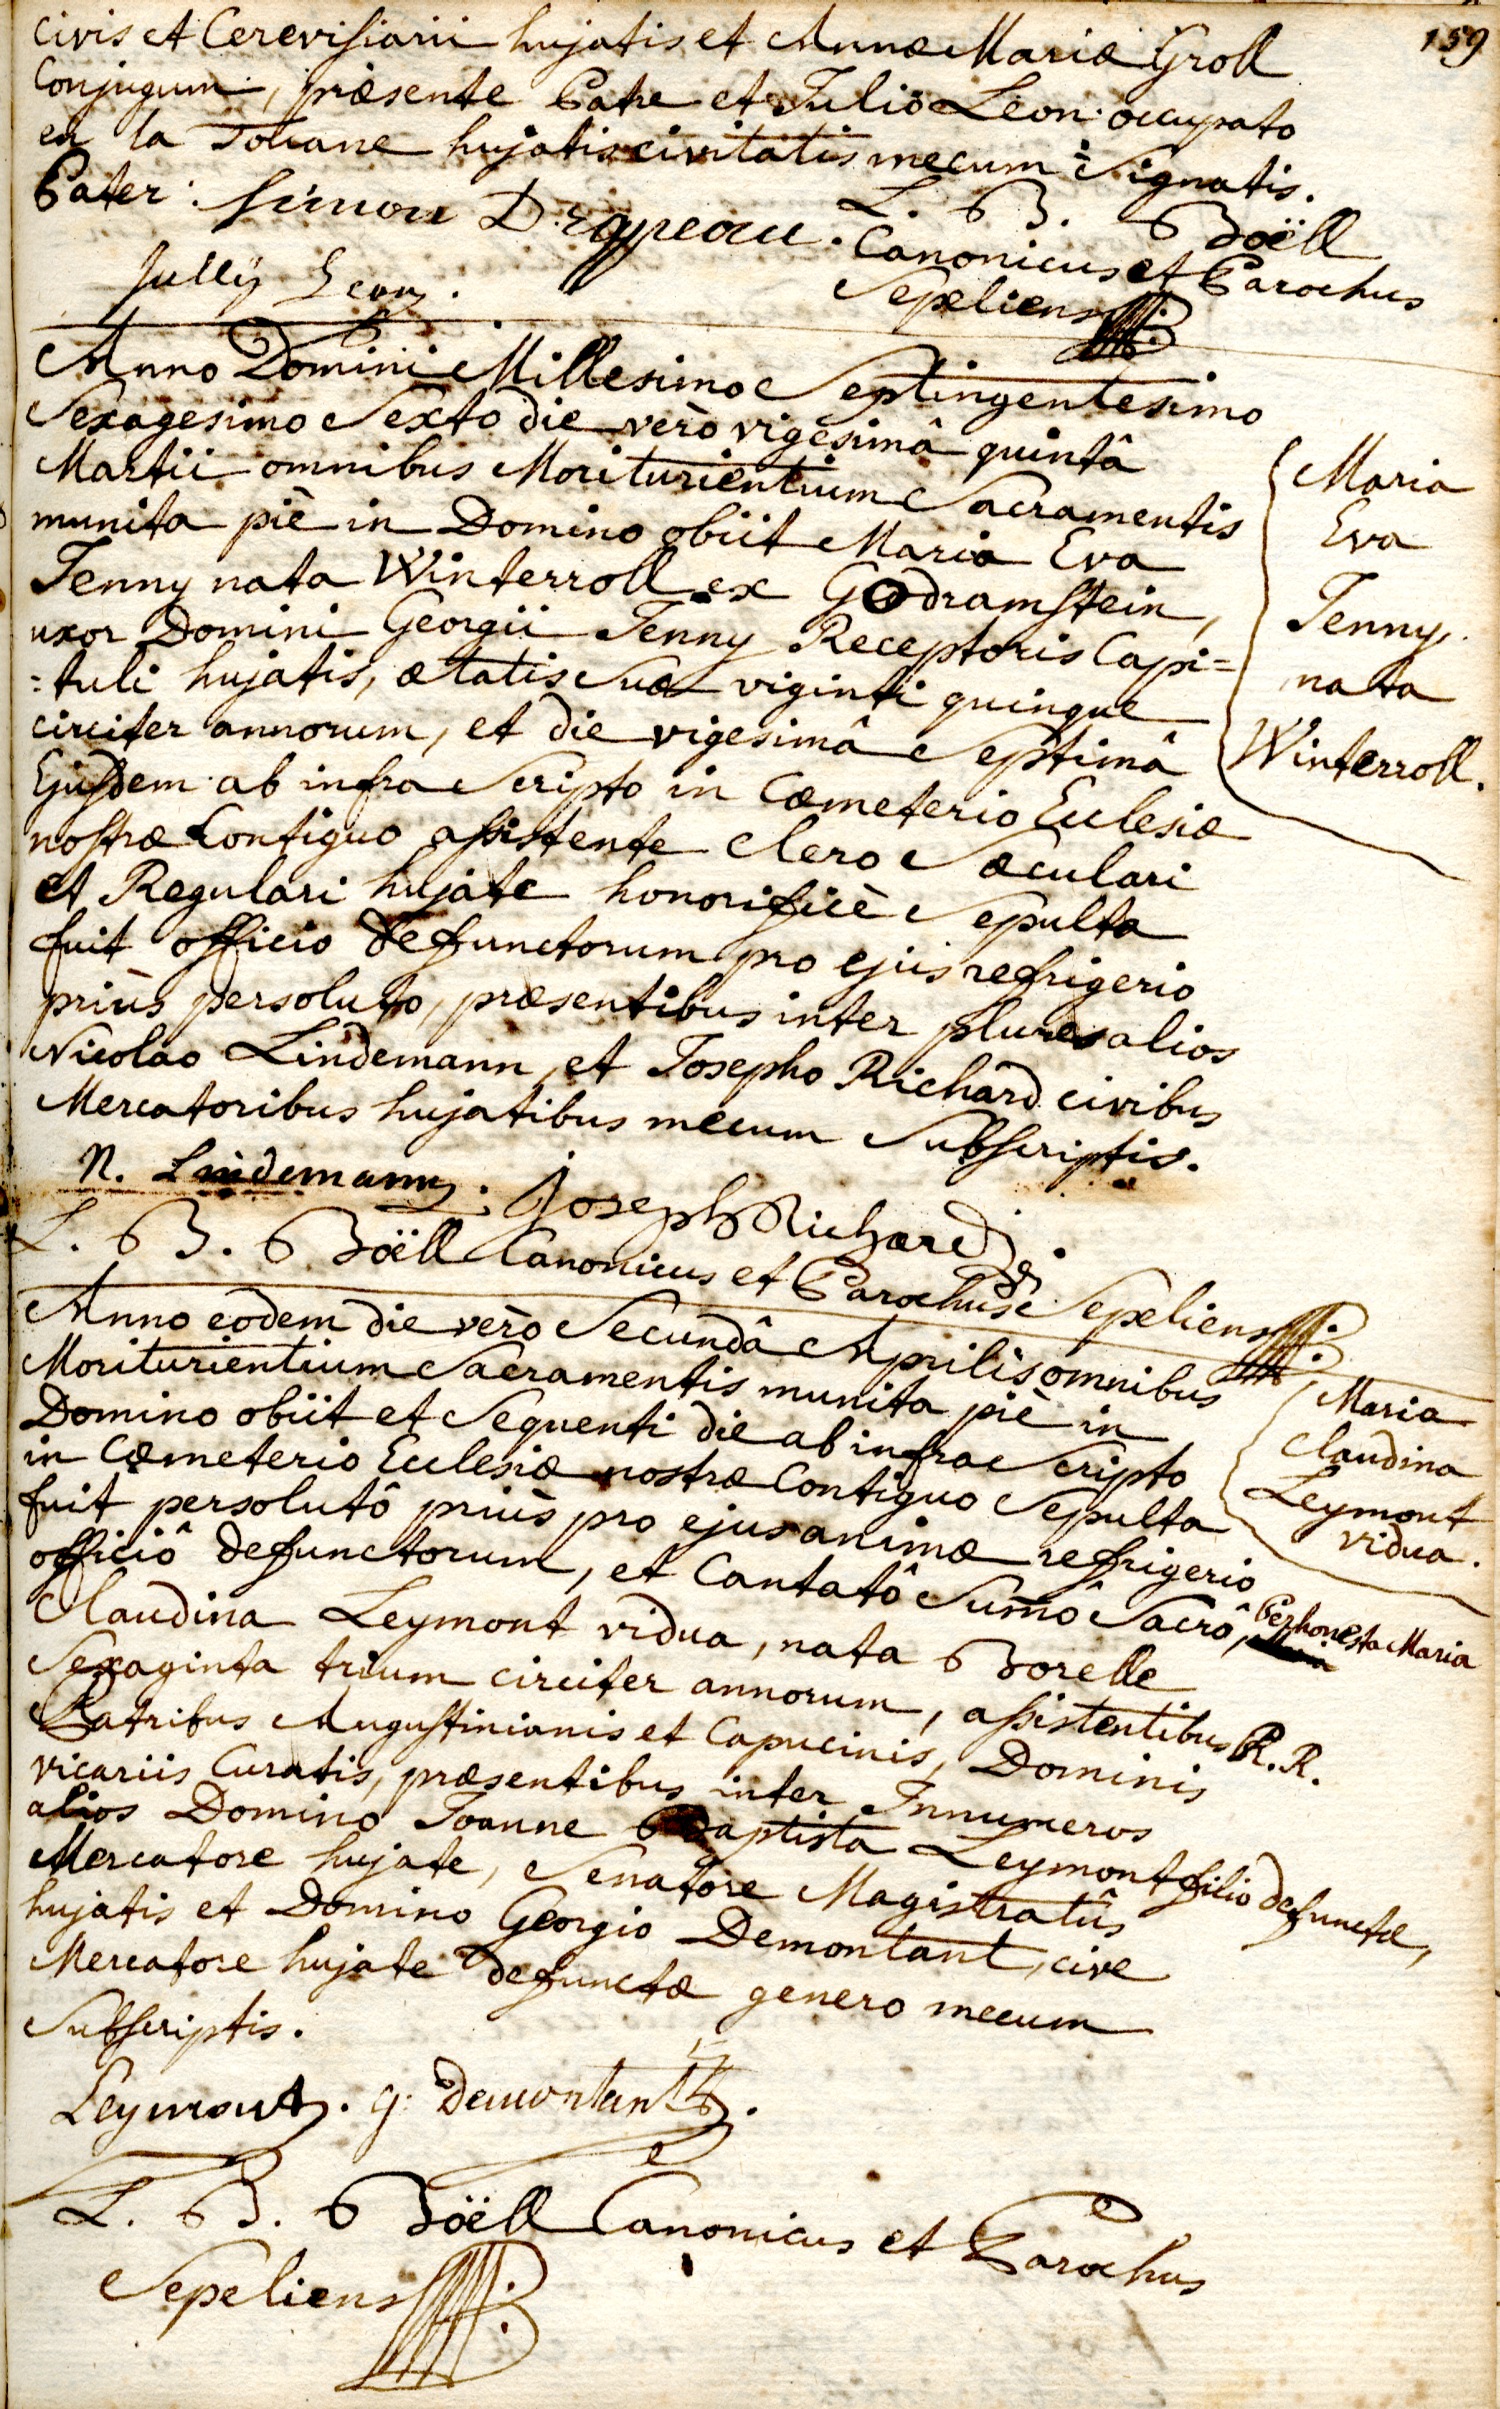 159
civis et Cerevisiarii hujatis et Annæ Mariæ Groll
Conjugum, præsente Patre et Julio Leon occupato
en la Douane hujatis civitatis mecum Signatis.
Pater: Simon Drapeau.
L. B. Boëll
Canonicus et Parochus
Sepeliens
Jullÿ Leon.
Anno Domini Millesimo Septingentesimo
Sexagesimo Sexto die verò vigesimâ quintâ
Martii omnibus Moriturientium Sacramentis
munita piè in Domino obiit Maria Eva
Jenny nata Winterroll ex Godramstein,
uxor Domini Georgii Jenny Receptoris Capi=
=tuli hujatis, ætatis Suæ viginti quinque
circiter annorum, et die vigesimâ Septimâ
Ejusdem ab infra Scripto in Cæmeterio Ecclesiæ
nostræ Contiguo assistente Clero Sæculari
et Regulari hujate honorificè Sepulta
fuit officio defunctorum pro ejus refrigerio
priùs persoluto, præsentibus inter plures alios
Nicolao Lindemann, et Josepho Richard civibus
Mercatoribus hujatibus mecum Subscriptis.
Maria
Eva
Jenny
nata
Winterroll.
N. Lindemann. Joseph Richard.
L. B. Boëll Canonicus et Parochus Sepeliens
Anno eodem die verò Secundâ Aprilis omnibus
Moriturientium Sacramentis munita piè in
Domino obiit et Sequenti die ab infra Scripto
in Cæmeterio Ecclesiæ nostræ Contiguo Sepulta
fuit persolutô priùs pro ejus animæ refrigerio
officiô defunctorum, et Cantatô Sumô Sacrô, Perhonesta Maria
Claudina Leymont vidua, nata Borelle
Sexaginta trium circiter annorum, assistentibus R.R.
Patribus Augustinianis et Capucinis, Dominis
vicariis Curatis, præsentibus inter Innumeros
alios Domino Joanne Baptista Leymont filio defunctæ,
Mercatore hujate, Senatore Magistratûs
hujatis et Domino Georgio Demontant, cive
Mercatore hujate defunctæ genero mecum
Subscriptis.
Maria
Claudina
Leymont
vidua.
Leymont. g. Demontant.
L. B. Boëll Canonicus et Parochus
Sepeliens